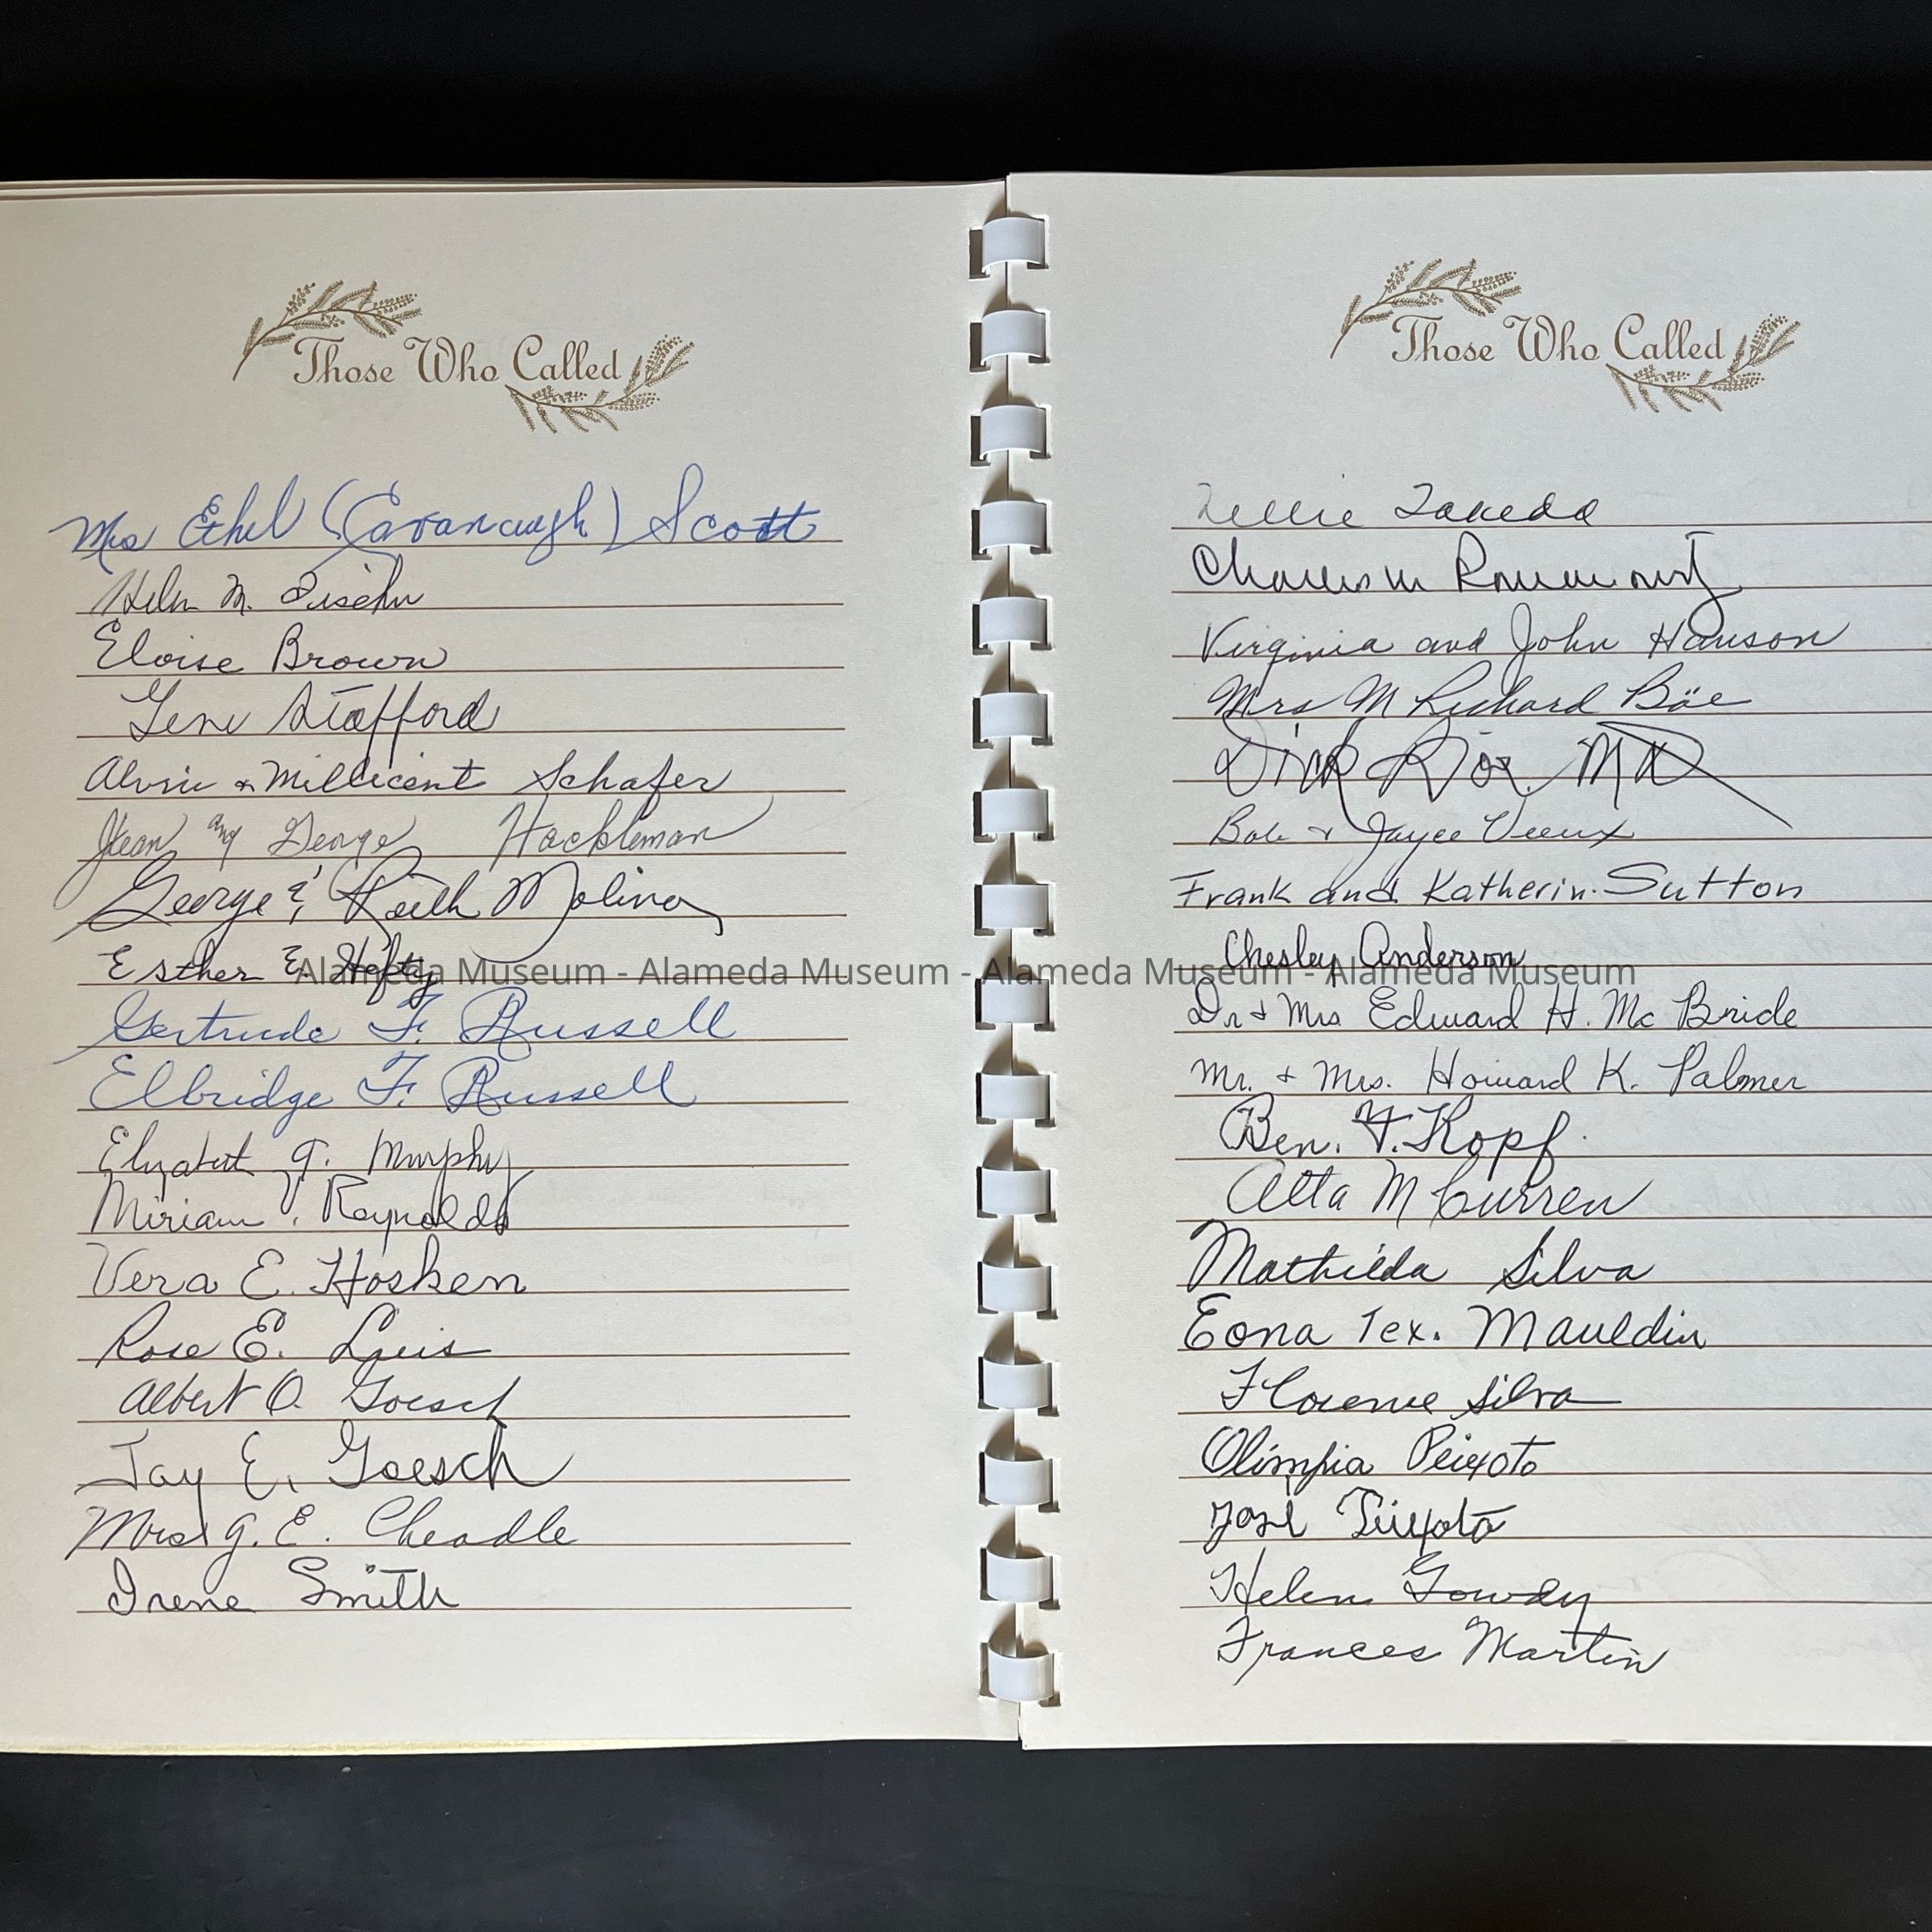 Those Who Called
Mrs Ethel (Cavanaugh) Scott
M.
Eloise Brown
Gene Stafford
Alvin & Millicent Schafer
Jean and George Hackleman
George & Ruth Molina
Esther E. Hefty
Gertrude F. Russell
Elbridge F. Russell
Elizabeth G. Murphy
Miriam Reynolds
Vera E. Hosken
Rose E. Luis
Albert O. Goesch
Jay E. Goesch
Mrs G. E. Cheadle
Irene Smith
Those Who Called
Takeda
Virginia and John Hanson
Mrs M Richard Böe
Dick MD
Bob & Jayee Vieux
Frank and Katherin Sutton
Chesley Anderson
Dr & Mrs Edward H. Mc Bride
Mr. & Mrs. Howard K. Palmer
Ben. F. Kopf.
Alta M Curren
Mathilda Silva
Eona Tex. Mauldin
Florence Silva
Olimpia Peixoto
Helen Gowdy
Frances Martin
Alameda Museum - Alameda Museum - Alameda Museum - Alameda Museum